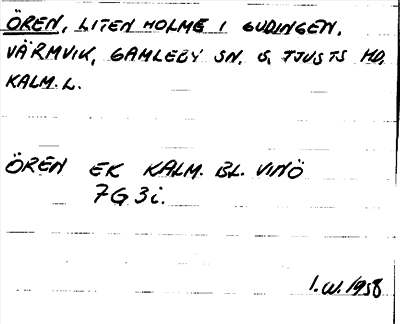 ÖREN, LITEN HOLME I GUDINGEN.
VÄRMVIK, GAMLEBY SN. S. TJUSTS HD,
KALM. L.
ÖREN EK KALM. BL. VINÖ
7G 3i.
I.W. 1958